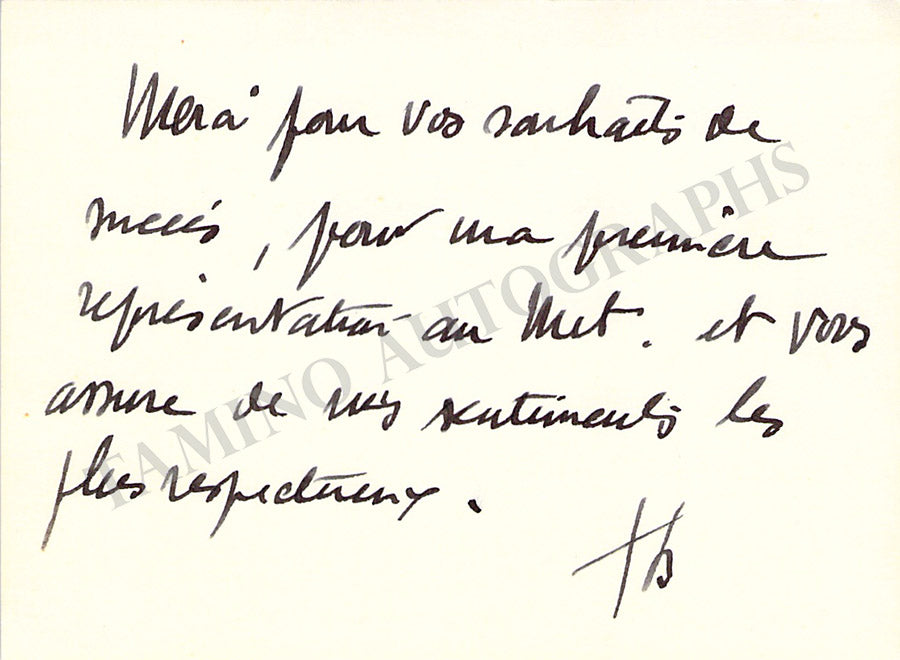 Merci pour vos souhaits de
succés, pour ma première
représentation au Met. et vous
assure de mes sentiments les
plus respectueux.
TAMINO AUTOGRAPHS